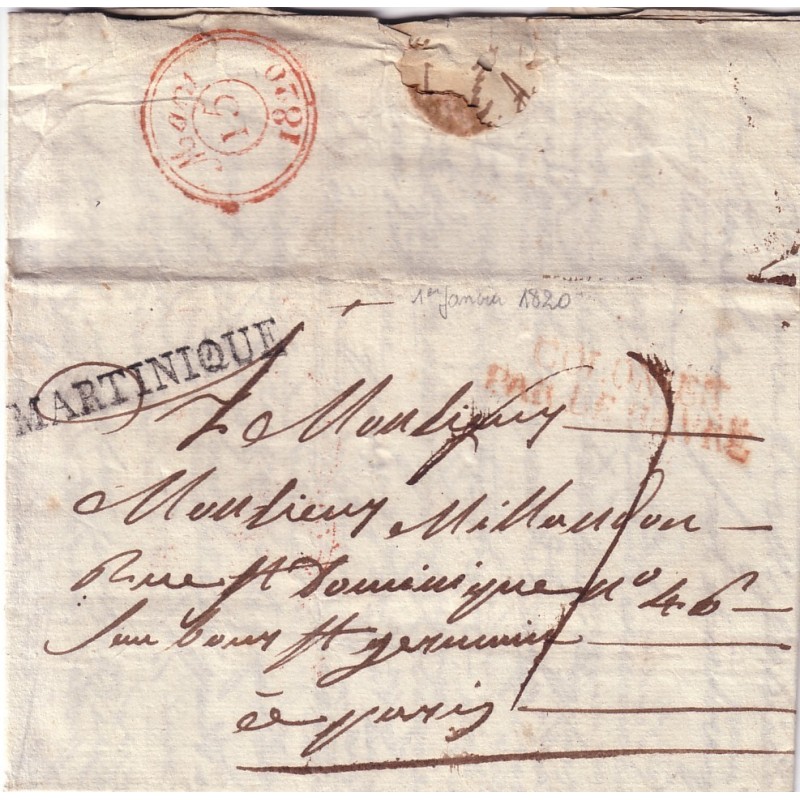 1820
15
1er Janvier 1820
MARTINIQUE
COLONIES
PAR LE HAVRE
A Monsieur
Monsieur Millaudon
Rue St Dominique no 46
faubour St germain
à paris